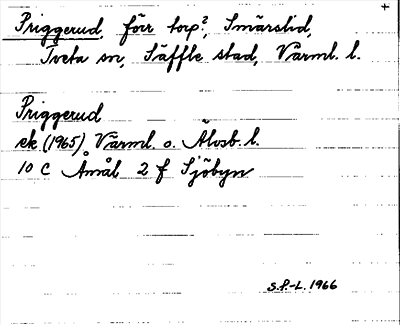 +
Priggerud, förr torp?, Smärslid,
Tveta sn, Säffle stad, Värml. l.
Priggerud
ek (1965) Värml. o. Älvsb. l.
10 C Åmål 2 f Sjöbyn
S.P.-L. 1966